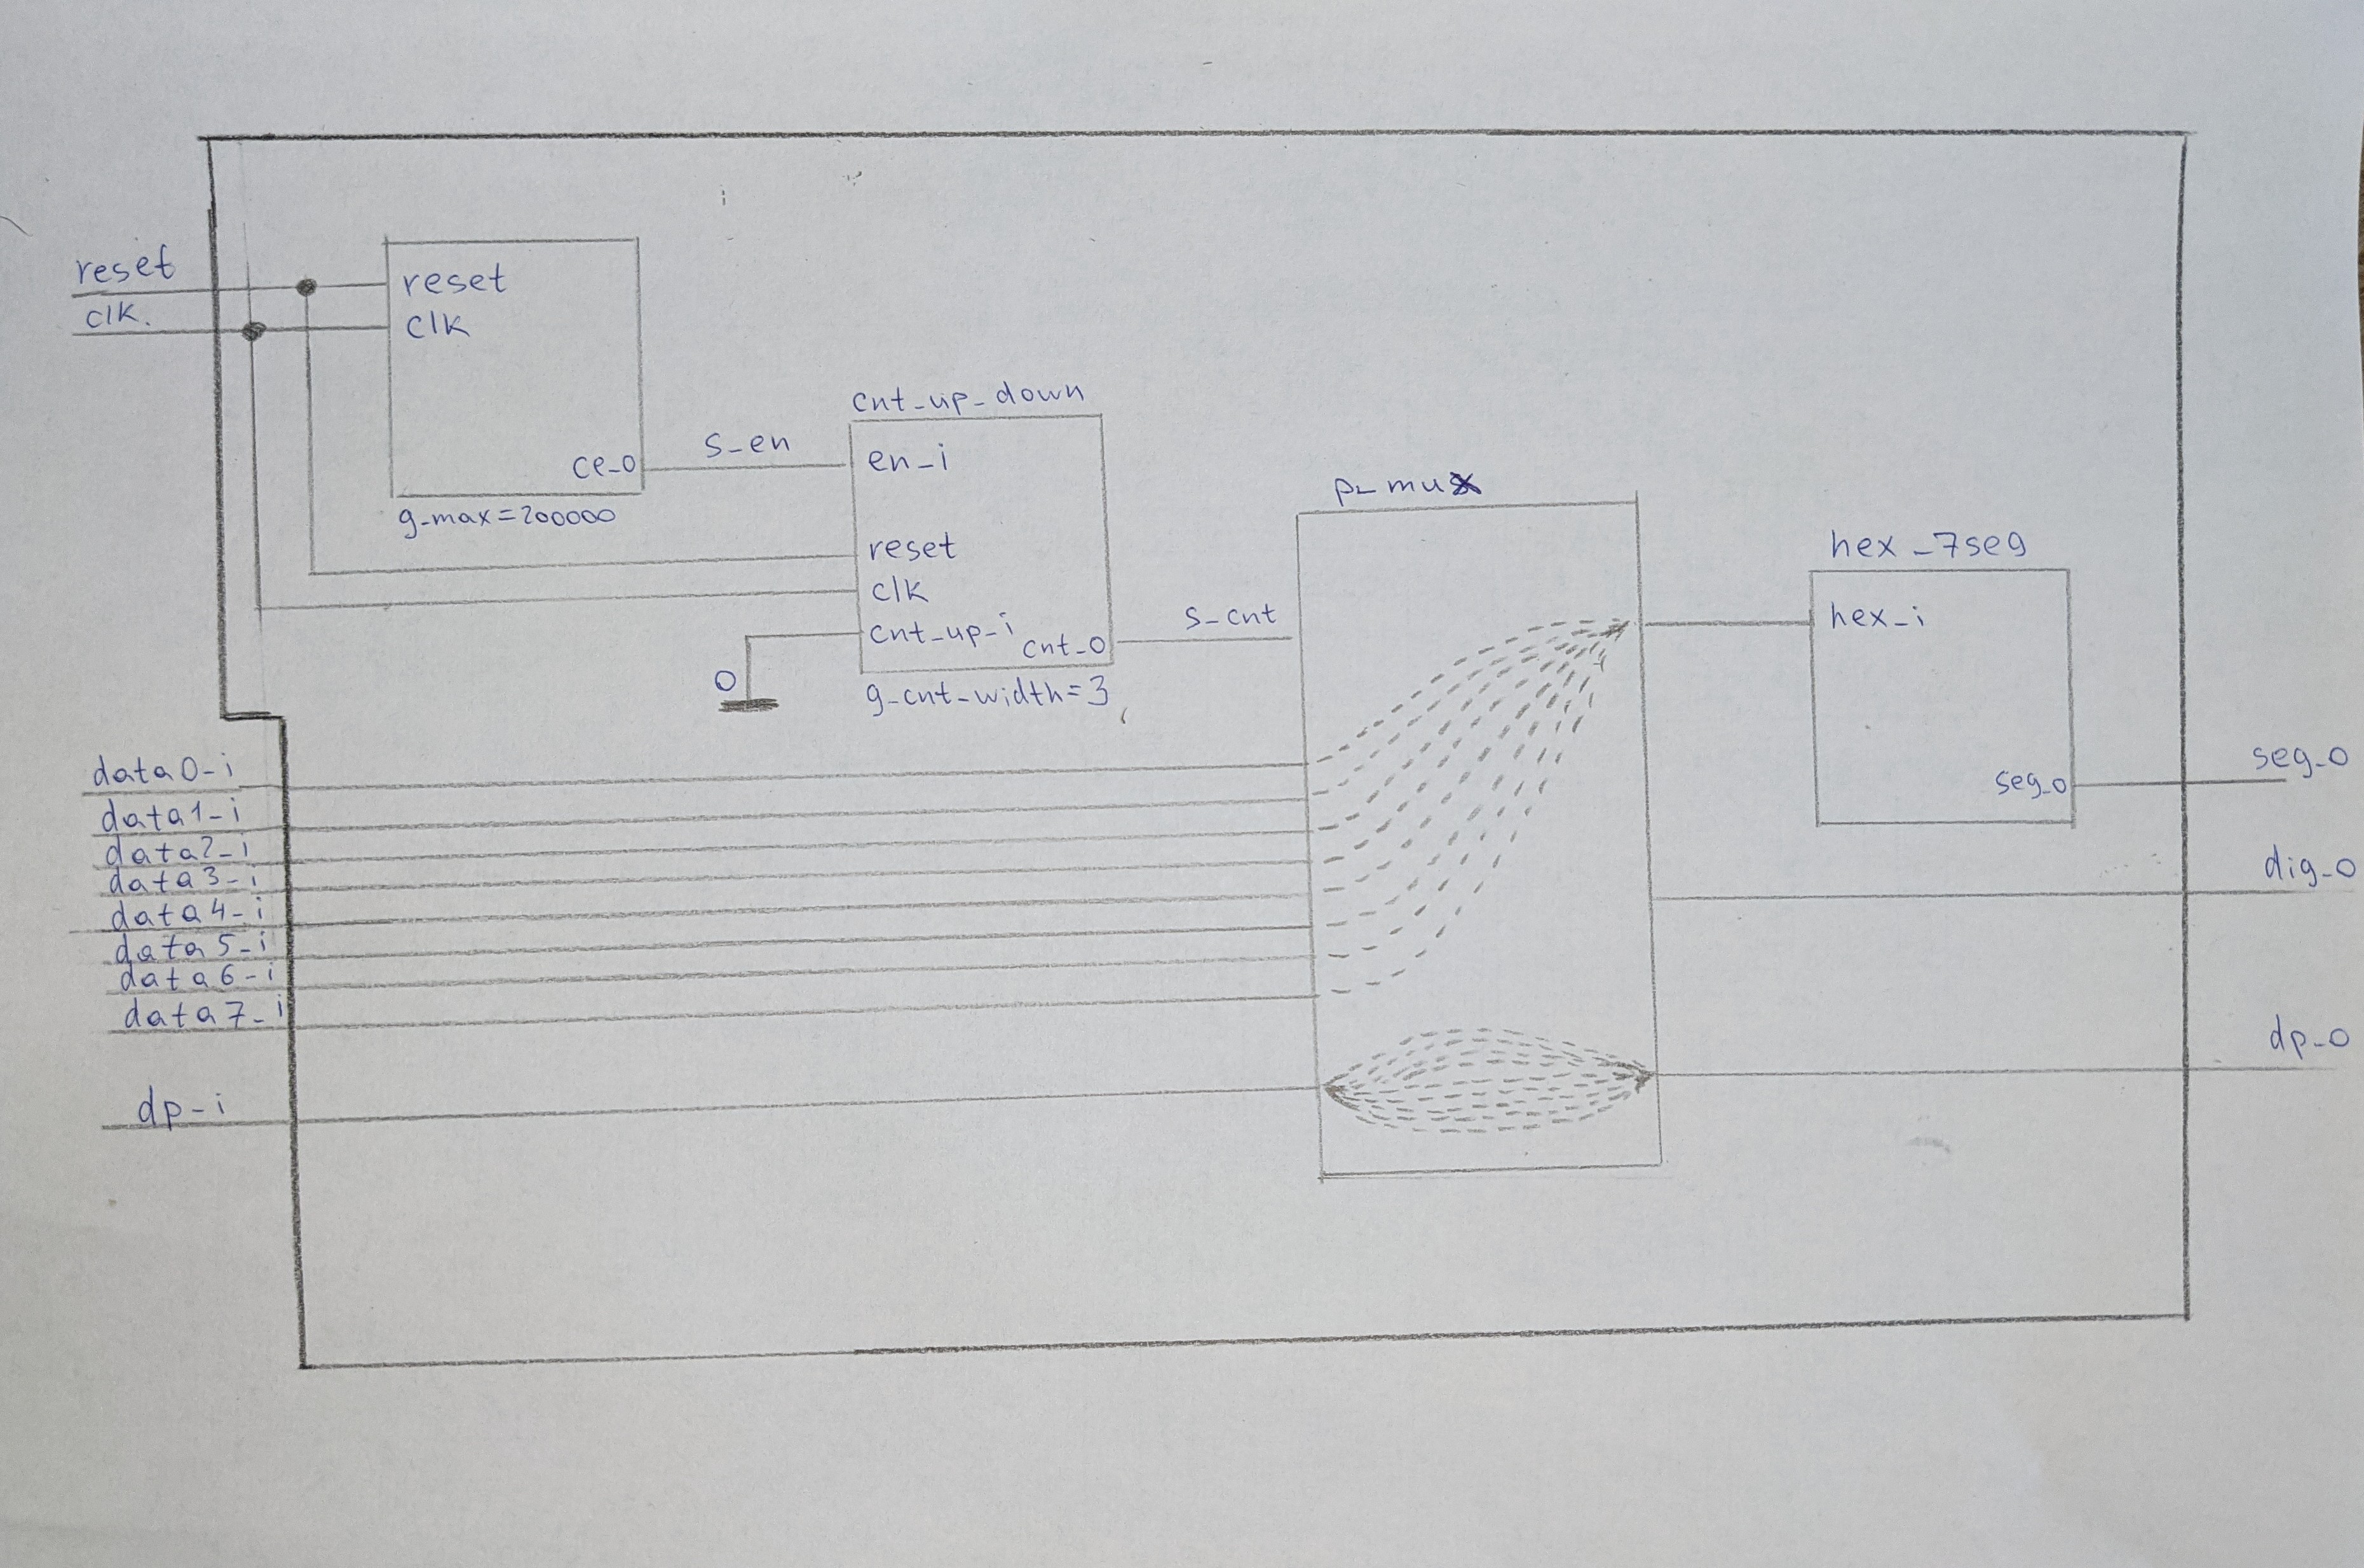 reset
clk.
reset
clk
ce_o
g_max=200000
s_en
cnt_up_down
en_i
reset
clk
cnt_up_i
cnt_o
0
g_cnt_width=3
s_cnt
p_mux
hex_7seg
hex_i
seg_o
seg_o
dig_o
dp_o
data0_i
data1_i
data2_i
data3_i
data4_i
data5_i
data6_i
data7_i
dp_i